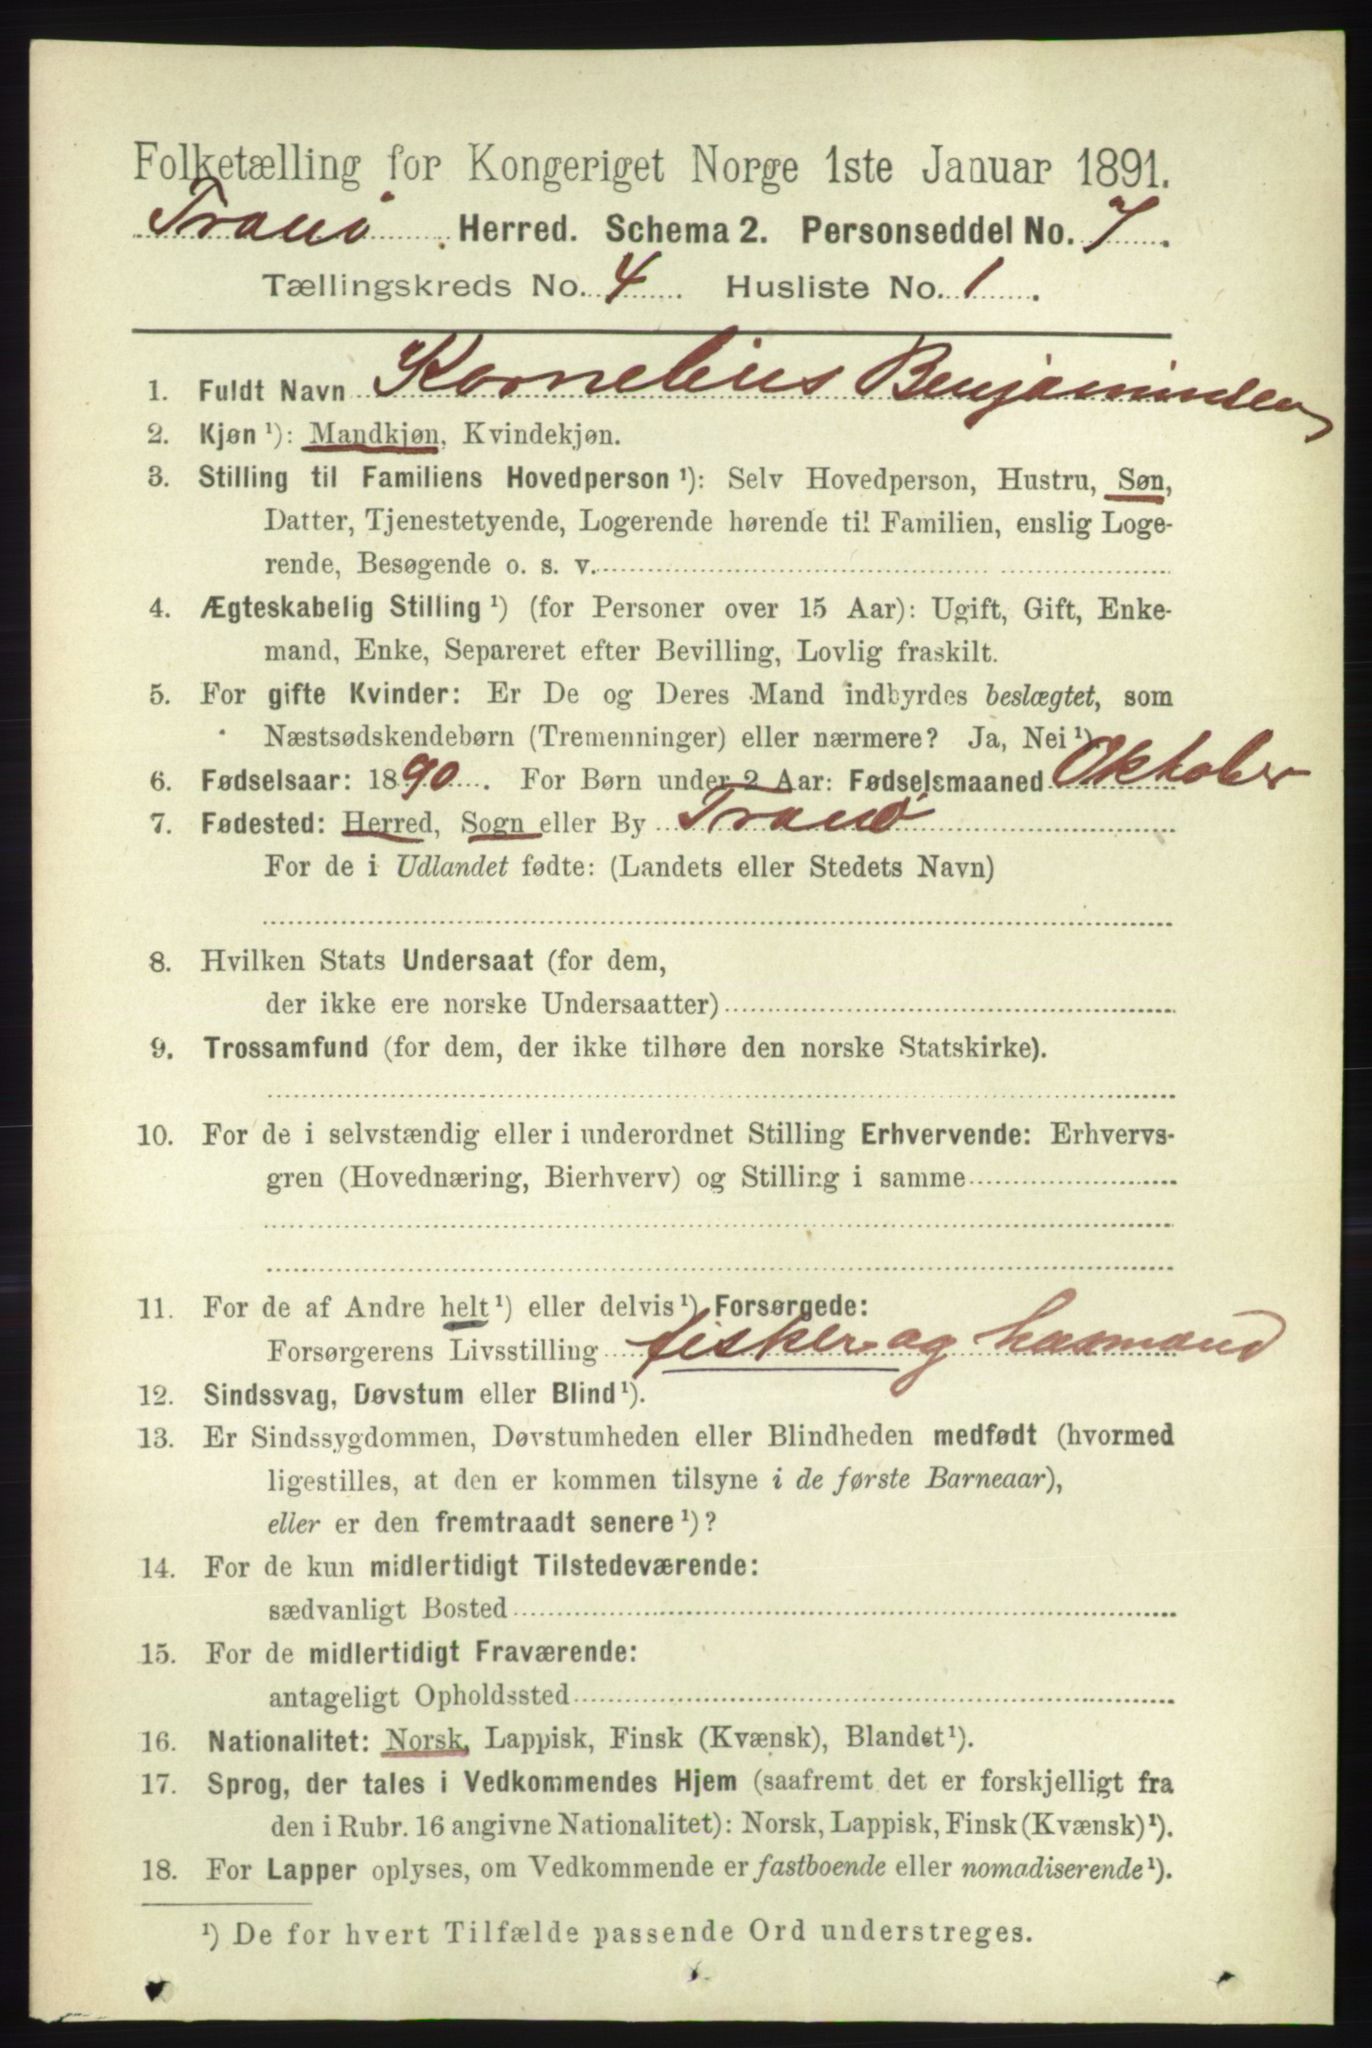 Folketælling for Kongeriget Norge 1ste Januar 1891.
Tranø Herred. Schema 2. Personseddel No. 7.
Tællingskreds No. 4. Husliste No. 1.
1. Fuldt Navn Kornelius Benjaminsen
2. Kjøn ¹): Mandkjøn, Kvindekjøn.
3. Stilling til Familiens Hovedperson ¹): Selv Hovedperson, Hustru, Søn,
Datter, Tjenestetyende, Logerende hørende til Familien, enslig Loge-
rende, Besøgende o. s. v.
4. Ægteskabelig Stilling ¹) (for Personer over 15 Aar): Ugift, Gift, Enke-
mand, Enke, Separeret efter Bevilling, Lovlig fraskilt.
5. For gifte Kvinder: Er De og Deres Mand indbyrdes beslægtet, som
Næstsødskendebørn (Tremenninger) eller nærmere? Ja, Nei ¹).
6. Fødselsaar: 1890. For Børn under 2 Aar: Fødselsmaaned Oktober
7. Fødested: Herred, Sogn eller By Tranø
For de i Udlandet fødte: (Landets eller Stedets Navn)
8. Hvilken Stats Undersaat (for dem,
der ikke ere norske Undersaatter)
9. Trossamfund (for dem, der ikke tilhøre den norske Statskirke).
10. For de i selvstændig eller i underordnet Stilling Erhvervende: Erhvervs-
gren (Hovednæring, Bierhverv) og Stilling i samme
11. For de af Andre helt ¹) eller delvis ¹) Forsørgede:
Forsørgerens Livsstilling fisker og husmand
12. Sindssvag, Døvstum eller Blind ¹).
13. Er Sindssygdommen, Døvstumheden eller Blindheden medfødt (hvormed
ligestilles, at den er kommen tilsyne i de første Barneaar),
eller er den fremtraadt senere ¹)?
14. For de kun midlertidigt Tilstedeværende:
sædvanligt Bosted
15. For de midlertidigt Fraværende:
antageligt Opholdssted
16. Nationalitet: Norsk, Lappisk, Finsk (Kvænsk), Blandet ¹).
17. Sprog, der tales i Vedkommendes Hjem (saafremt det er forskjelligt fra
den i Rubr. 16 angivne Nationalitet): Norsk, Lappisk, Finsk (Kvænsk) ¹).
18. For Lapper oplyses, om Vedkommende er fastboende eller nomadiserende ¹).
¹) De for hvert Tilfælde passende Ord understreges.